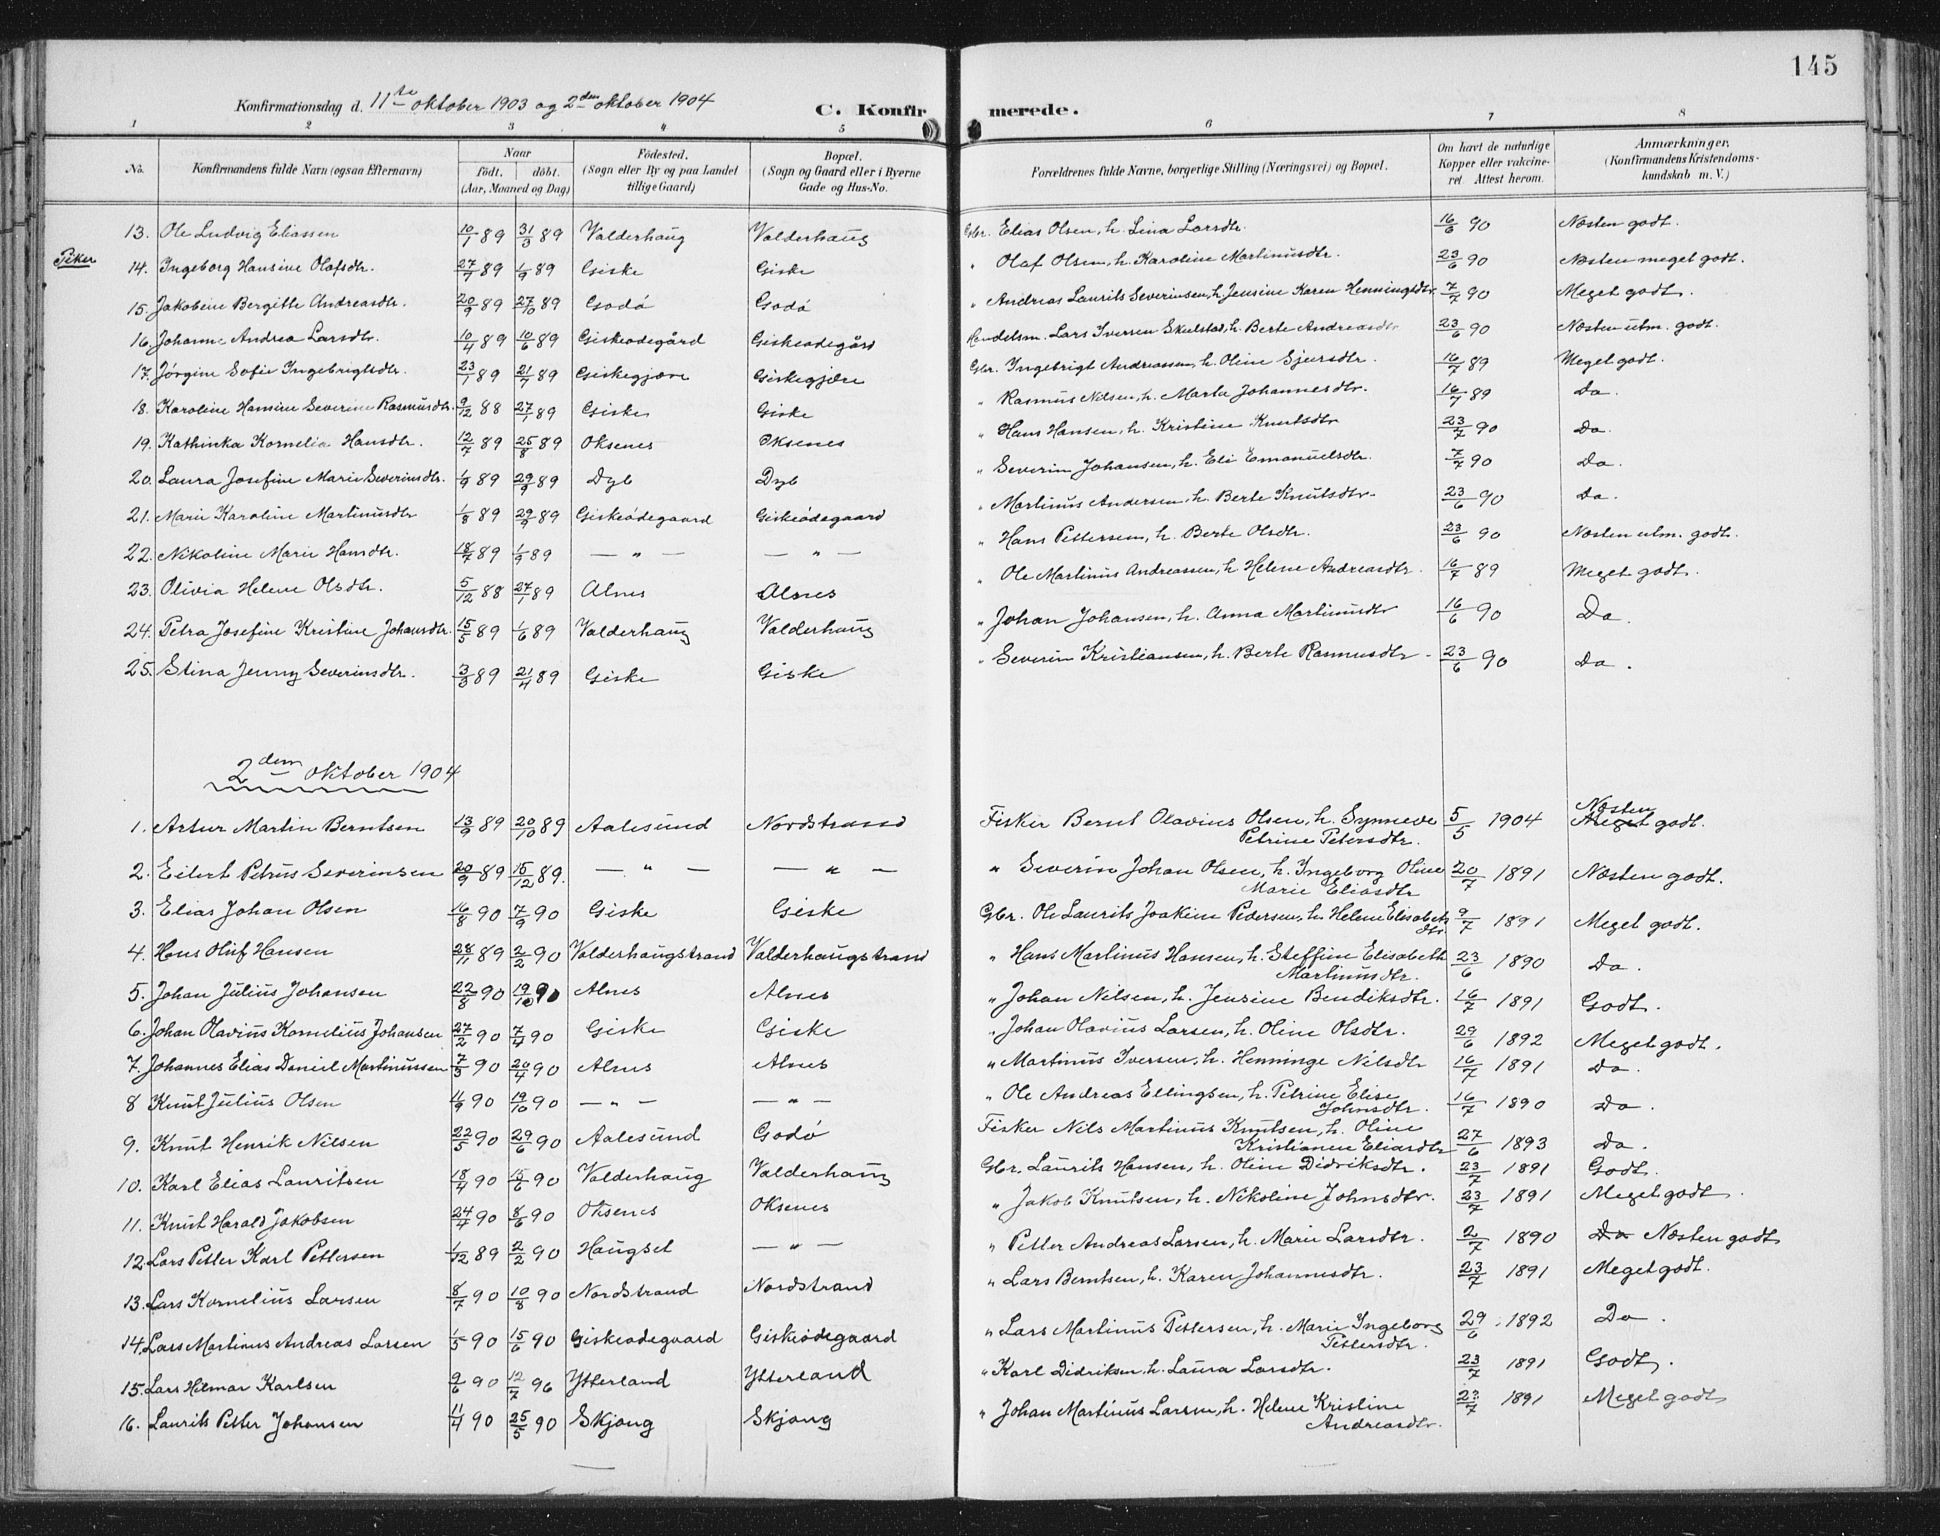 145
Konfirmationsdag d. 11te oktober 1903 og 2den oktober 1904 C. Konfirmerede.
1 2 3 4 5 6 7 8
No. Konfirmandens fulde Navn (ogsaa Efternavn) Naar født. døbt. (Aar, Maaned og Dag) Fødested. (Sogn eller By og paa Landet tillige Gaard) Bopæl. (Sogn og Gaard eller i Byerne Gade og Hus-No. Forældrenes fulde Navne, borgerlige Stilling (Næringsvei) og Bopæl. Om havt de naturlige Kopper eller vakcineret. Attest herom. Anmærkninger. (Konfirmandens Kristendomskundskab m. V.)
13. Ole Ludvig Eliassen 10/1 89 31/3 89 Valderhaug Valderhaug Gbr. Elias Olsen, h. Lina Larsdtr. 16/6 90 Næsten godt.
Piker
14. Ingeborg Hansine Olafsdtr. 27/7 89 1/9 89 Giske Giske " Olaf Olsen, h. Karoline Martinusdtr. 23/6 90 Næsten meget godt.
15. Jakobine Bergitte Andreasdtr. 20/9 89 27/10 89 Godø Godø " Andreas Laurits Severinsen, h. Jensine Karen Henningsdtr. 7/7 90 Meget godt.
16. Johanne Andrea Larsdtr. 10/4 89 10/6 89 Giskeødegård Giskeødegård Handelsm. Lars Iversen Skulstad, h. Berte Andreasdtr 23/6 90 Næsten utm. godt.
17. Jørgine Sofie Ingebrigtsdtr. 23/1 89 21/7 89 Giskegjære Giskegjære Gbr. Ingebrigt Andreassen, h. Oline Sjursdtr. 16/7 89 Meget godt.
18. Karoline Hansine Severine Rasmusdtr. 9/12 88 27/1 89 Giske Giske " Rasmus Nilsen, h. Marta Johannesdtr. 16/7 89 Do.
19. Kathinka Kornelia Hansdtr. 12/7 89 25/8 89 Oksenes Oksenes " Hans Hansen, h. Kristine Knutsdtr 23/7 90 Do.
20. Laura Josefine Marie Severinsdtr. 1/9 89 29/9 89 Dyb Dyb " Severin Johansen, h. Eli Emanuelsdtr. 7/7 90 Do.
21. Marie Karoline Martinusdtr 1/8 89 29/9 89 Giskeødegaard Giskeødegaard " Martinus Andersen, h. Berte Knutsdtr. 23/6 90 Do.
22. Nikoline Marie Hansdtr. 18/7 89 1/9 89 — " — — " — " Hans Pettersen, h. Berte Olsdtr. 23/6 90 Næsten utm. godt.
23. Olivia Helene Olsdtr. 5/12 88 27/1 89 Alnes Alnes " Ole Martinus Andreassen, h. Helene Andreasdtr. 16/7 89 Meget godt.
24. Petra Josefine Kristine Johansdtr. 15/5 89 1/6 89 Valderhaug Valderhaug " Johan Johansen, h. Anna Martinusdtr 16/6 90 Do.
25. Stina Jenny Severinsdtr. 3/3 89 21/4 89 Giske Giske " Severin Kristiansen, h. Berte Rasmusdtr. 23/6 90 Do.
2den oktober 1904
1. Artur Martin Berntsen 13/9 89 20/10 89 Aalesund Nordstrand Fisker Bernt Olavius Olsen, h. Synneve Petrine Petersdtr. 5/5 1904 Næsten Meget godt.
2. Eilert Petrus Severinsen 20/9 89 15/12 89. — " — — " — " Severin Johan Olsen, h. Ingeborg Oline Marie Eliasdtr 20/7 1891 Næsten godt.
3. Elias Johan Olsen 16/8 90 7/9 90 Giske Giske Gbr. Ole Laurits Joakim Pedersen, h. Helene Elisabeth dtr. 9/7 1891 Meget godt.
4. Hans Oluf Hansen 28/11 89 2/2 90 Valderhaugstrand Valderhaugstrand " Hans Martinus Hansen, h. Steffine Elisabeth Martinusdtr. 23/6 1890 Do.
5. Johan Julius Johansen 22/8 90 19/10 90 Alnes Alnes " Johan Nilsen, h. Jensine Bendiksdtr. 16/7 1891 Godt.
6. Johan Olavius Kornelius Johansen 27/2 90 7/4 90 Giske Giske " Johan Olavius Larsen, h. Oline Olsdtr. 29/6 1892 Meget godt.
7. Johannes Elias Daniel Martinussen 7/3 90 20/4 90 Alnes Alnes " Martinus Iversen, h. Henninge Nilsdtr 16/7 1891 Do.
8 Knut Julius Olsen 11/9 90 19/10 90 — " — — " — " Ole Andreas Ellingsen, h. Petrine Elise Johnsdtr. 16/7 1890 Do.
9. Knut Henrik Nilsen 22/5 90 29/6 90 Aalesund Godø Fisker Nils Martinus Knutsen, h. Oline Kristianne Eliasdtr 27/6 1893 Do.
10. Karl Elias Lauritsen 18/4 90 15/6 90 Valderhaug Valderhaug Gbr. Laurits Hansen, h. Oline Didriksdtr. 23/7 1891 Godt.
11. Knut Harald Jakobsen 24/4 90 8/6 90 Oksenes Oksenes " Jakob Knutsen, h. Nikoline Johnsdtr. 23/7 1891 Meget godt.
12. Lars Petter Karl Pettersen 1/12 89 2/2 90 Haugset — " — " Petter Andreas Larsen, h. Marie Larsdtr. 2/7 1890 Do Næsten godt
13. Lars Kornelius Larsen 8/7 90 10/8 90 Nordstrand Nordstrand " Lars Berntsen, h. Karen Johannesdtr. 23/7 1891 Meget godt.
14. Lars Martinus Andreas Larsen 1/5 90 15/6 90 Giskeødegaard Giskeødegaard " Lars Martinus Pettersen, h. Marie Ingeborg Pettersdtr. 29/6 1892 Do.
15. Lars Hilmar Karlsen 9/6 90 12/7 96 Ytterland Ytterland " Karl Didriksen, h. Laura Larsdtr. 23/7 1891 Godt.
16. Laurits Petter Johansen 11/4 90 25/5 90 Skjong Skjong " Johan Martinus Larsen, h. Helene Kristine Andreasdtr. 23/7 1891 Meget godt